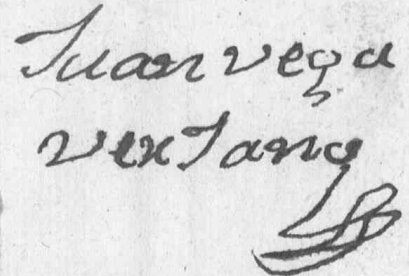 Juan vega
vexJano